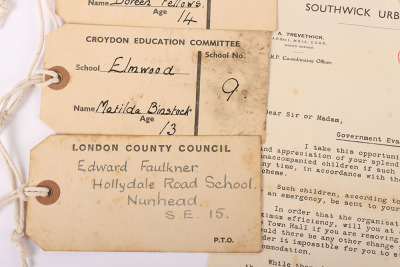 Doreen Fellows.
Age
14
CROYDON EDUCATION COMMITTEE
School
Elmwood
School No.
9.
Name Matilda Binstock
Age
13
LONDON COUNTY COUNCIL
Edward Faulkner
Hollydale Road School.
Nunhead
S.E. 15.
P.T.O.
SOUTHWICK URB
A. TREVETHICK,
M.P. Co-ordinating Officer.
Dear Sir or Madam,
Government Eva
I take this opportuni
and appreciation of your splend
unaccompanied children if such
scheme, in accordance with the
Such children, according to
an emergency, be sent to your
In order that the organisat
maximum efficiency, will you at
Town Hall if you are removing
should there be any other change
der it impossible for you to s
mmodate.